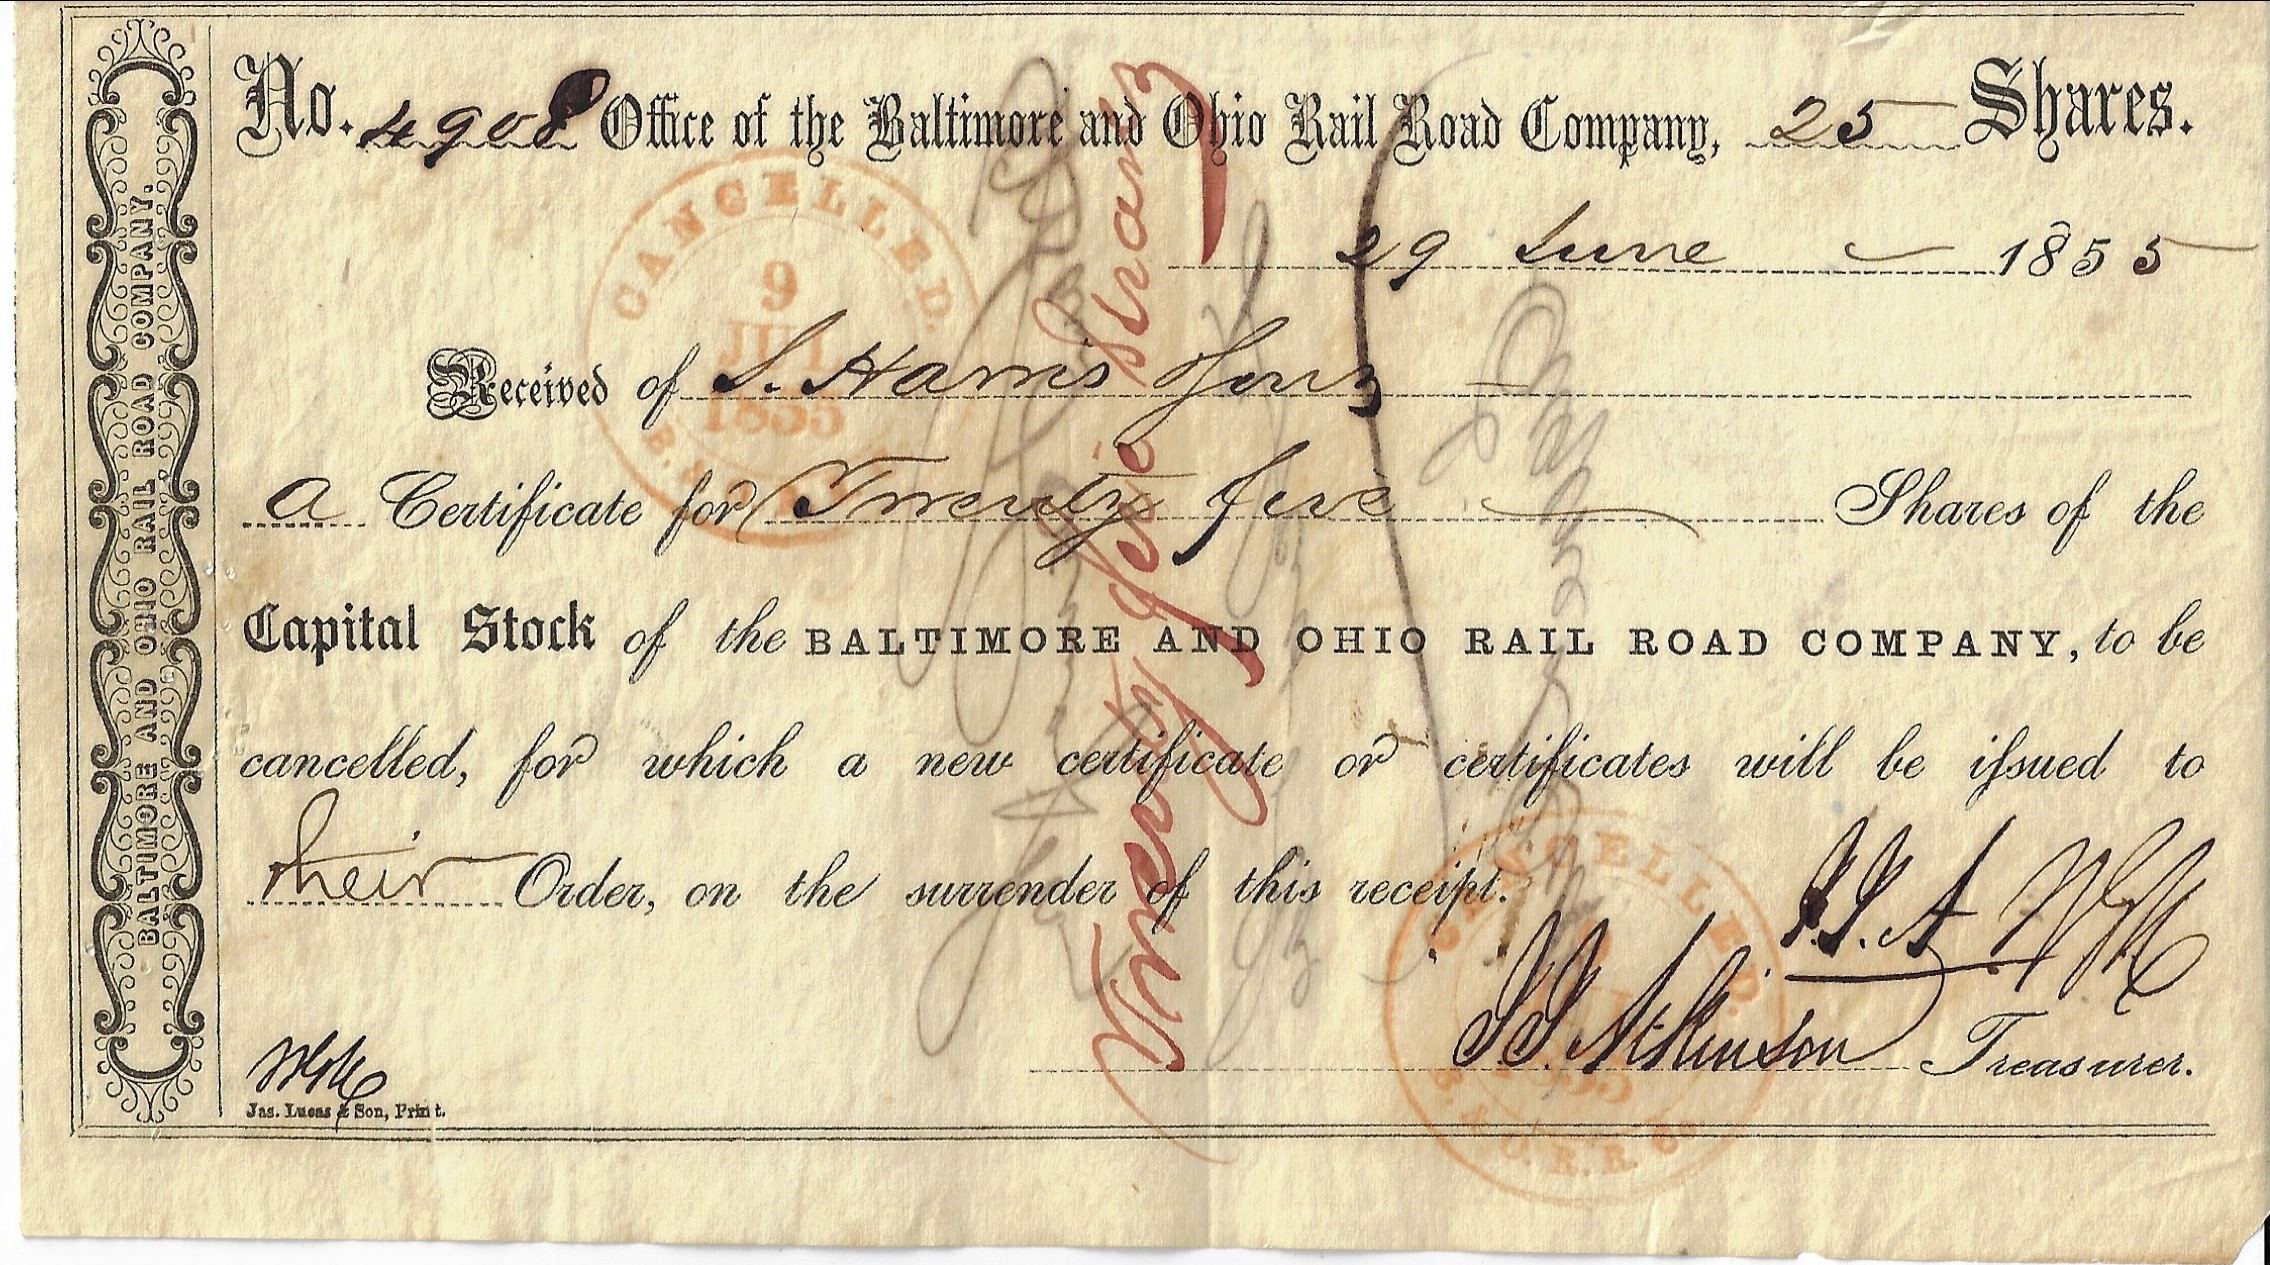 No. 4908 Office of the Baltimore and Ohio Rail Road Company, 25 Shares.
29 June 1855
Received of S. Harris & Sons
a Certificate for Twenty five Shares of the
Capital Stock of the BALTIMORE AND OHIO RAIL ROAD COMPANY, to be
cancelled, for which a new certificate or certificates will be issued to
their Order, on the surrender of this receipt.
J.J. Atkinson Treasurer.
Jas. Lucas & Son, Print.
BALTIMORE AND OHIO RAIL ROAD COMPANY.
CANCELLED.
9
JUL
1855
CANCELLED.
B. & O. R. R. Co
Twenty five Shares